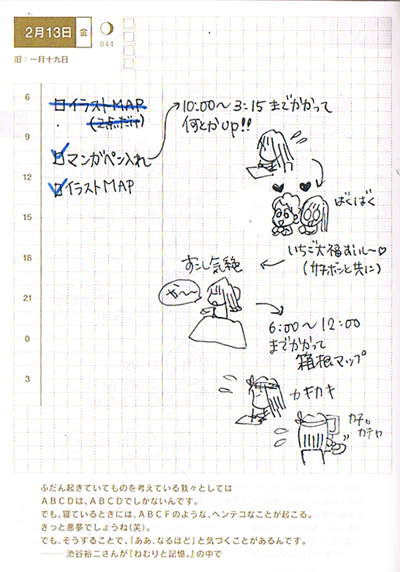 2月13日 金
044
旧:一月十九日
6
9
12
15
18
21
0
3
イラストMAP
(2点だけ)
マンガペン入れ
イラストMAP
10:00〜3:15までかかって
何とかup!!
ばくばく
いちご大福おいし〜♡
(カナボンと共に)
すこし気絶
や〜〜
6:00〜12:00
までかかって
箱根マップ
カキカキ
カチャ
カチャ
ふだん起きていてものを考えている我々としては
ABCDは、ABCDでしかないんです。
でも、寝ているときには、ABCFのような、ヘンテコなことが起こる。
きっと悪夢でしょうね(笑)。
でも、そうすることで、「ああ、なるほど」と気づくことがあるんです。
———池谷裕二さんが『ねむりと記憶。』の中で